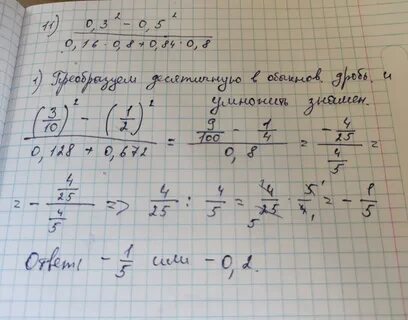 11) (0,3² - 0,5²) / (0,16 · 0,8 + 0,84 · 0,8)
1) Преобразуем десятичную в обыкнов. дробь и
умножить знамен.
((3/10)² - (1/2)²) / (0,128 + 0,672) = (9/100 - 1/4) / 0,8 = (-4/25) / (4/5) =
= - (4/25) / (4/5) => 4/25 : 4/5 = 4/25 · 5/4 = - 1/5
Ответ: - 1/5 или - 0,2.